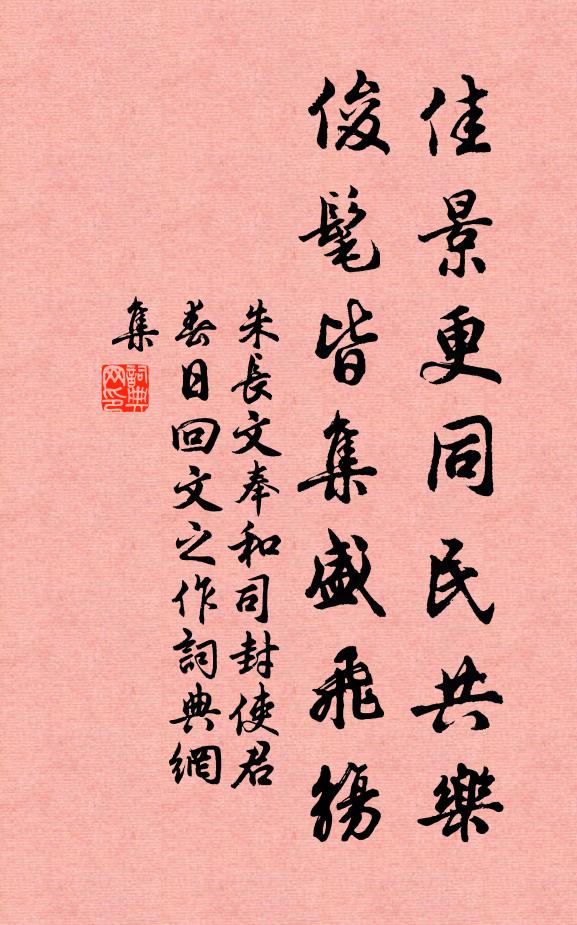 佳景更同民共樂
俊髦皆集盛飛觴
朱長文奉和司封使君
春日回文之作詞典網
集
詞典網印